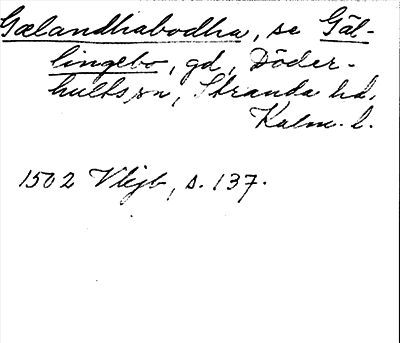 Gælandhabodha, se Gäl-
lingebo, gd, Döder-
hults sn, Stranda hd,
Kalm. l.
1502 Vhjb, s. 137.